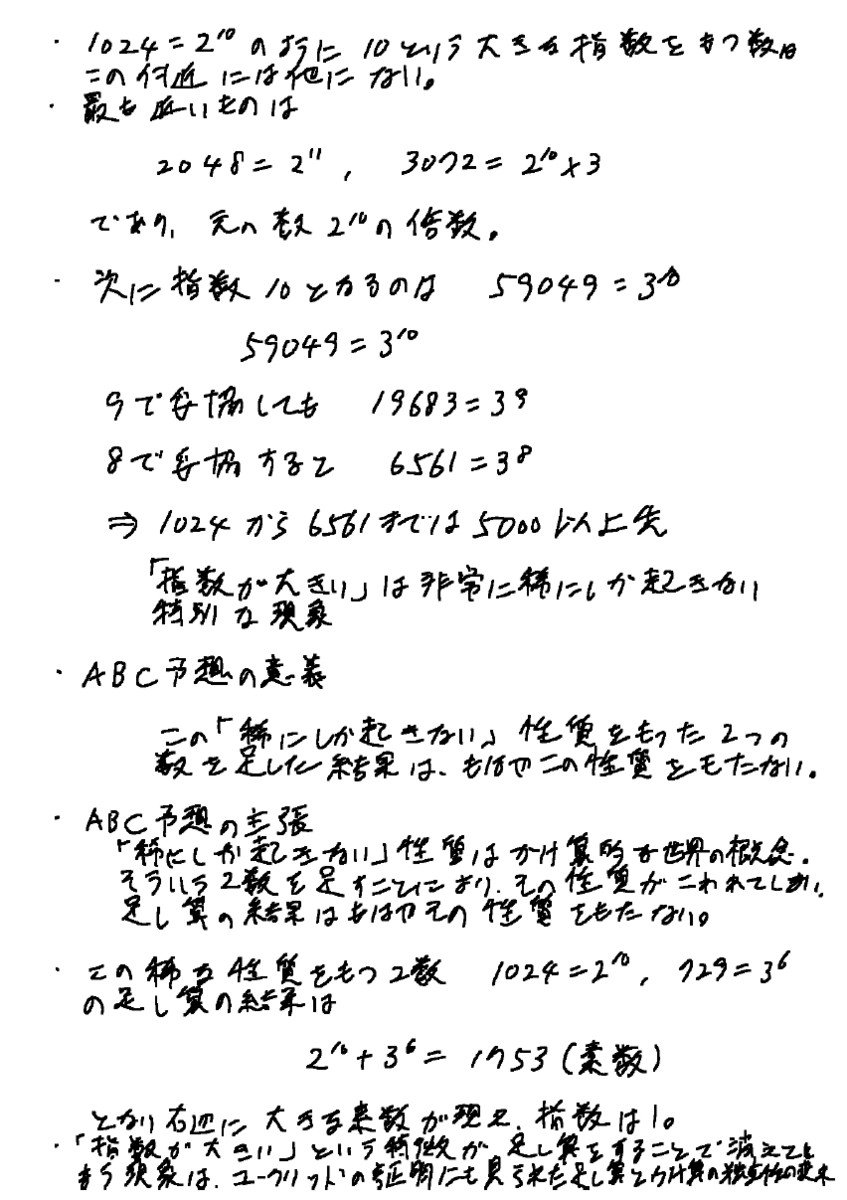 ・1024=2¹⁰のように10という大きな指数をもつ数は
この付近には他にない。
・最も近いものは
2048=2¹¹, 3072=2¹⁰×3
であり、元の数2¹⁰の倍数。
・次に指数10となるのは 59049=3¹⁰
59049=3¹⁰
9で妥協しても 19683=3⁹
8で妥協すると 6561=3⁸
⇒ 1024から6561までは5000以上先
「指数が大きい」は非常に稀にしか起きない
特別な現象
・ABC予想の意義
この「稀にしか起きない」性質をもった2つの
数を足した結果は、もはやこの性質をもたない。
・ABC予想の主張
「稀にしか起きない」性質はかけ算的な世界の概念。
そういう2数を足すことにより、その性質がこわれてしまい、
足し算の結果はもはやその性質をもたない。
・この稀な性質をもつ2数 1024=2¹⁰, 729=3⁶
の足し算の結果は
2¹⁰+3⁶=1753(素数)
となり右辺に大きな素数が現え、指数は1。
・「指数が大きい」という特徴が、足し算をすることで消えてし
まう現象は、ユークリッドの証明にも見られた足し算とかけ算の独立性の